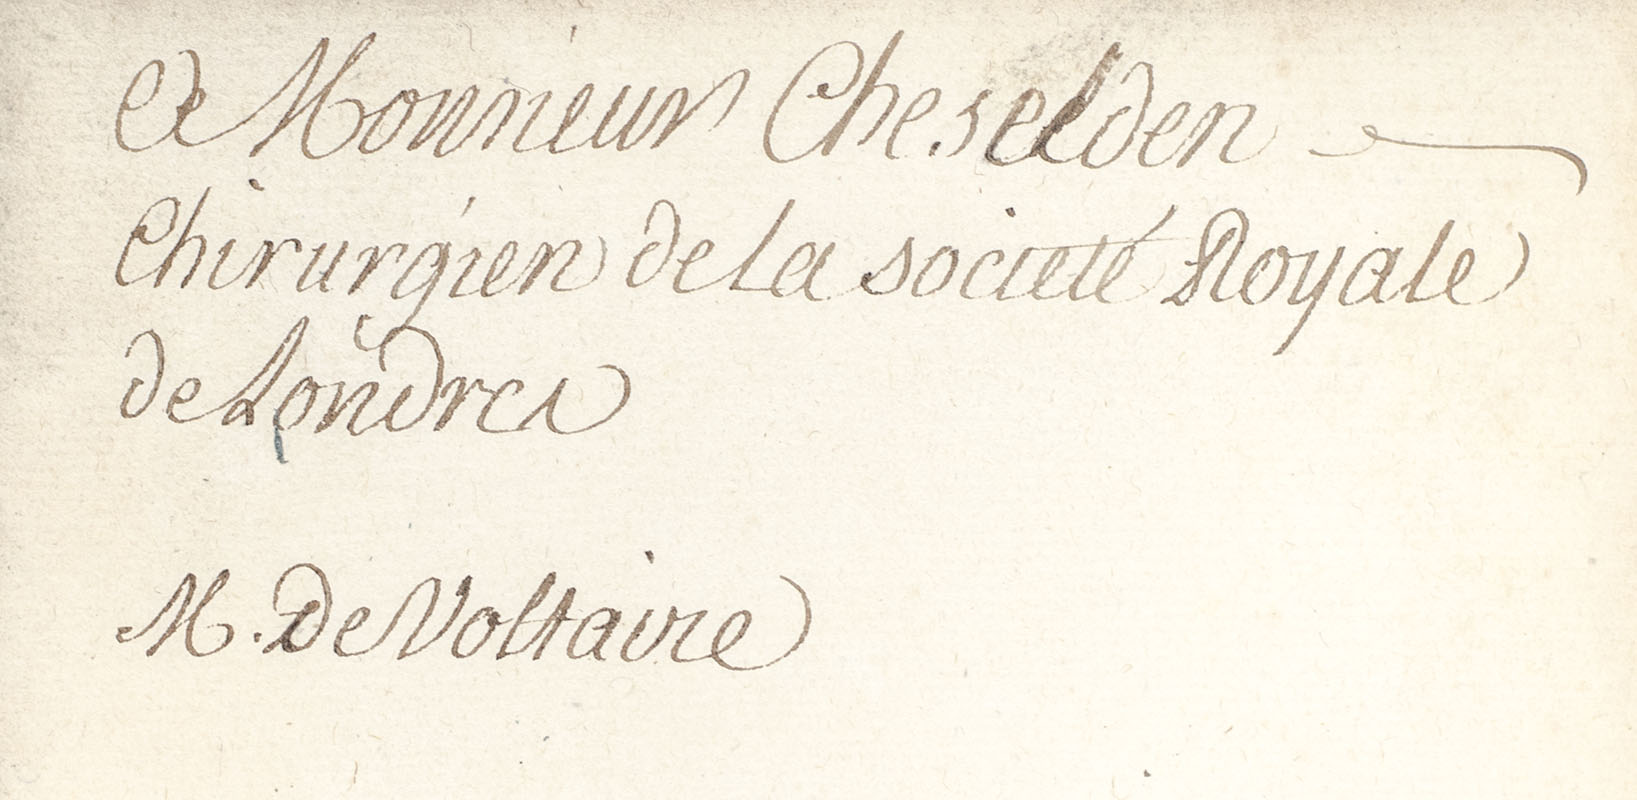 A Monsieur Cheselden
Chirurgien de la societé Royale
de Londres
M. De Voltaire